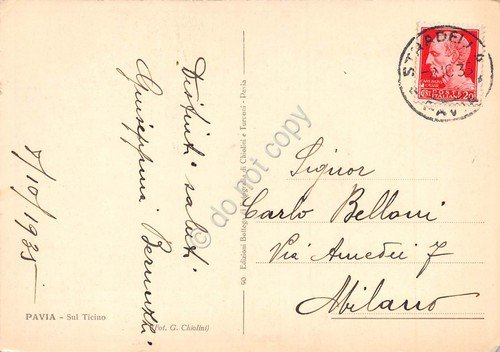 7/10/1935
Distinti saluti
Giuseppina
PAVIA - Sul Ticino
(Fot. G. Chiolini)
90 Edizioni Bottega di Chiolini e Turconi - Pavia
STRADELLA
PAVIA
Signor
Carlo Belloni
Via Amedei 7
Milano
do not copy